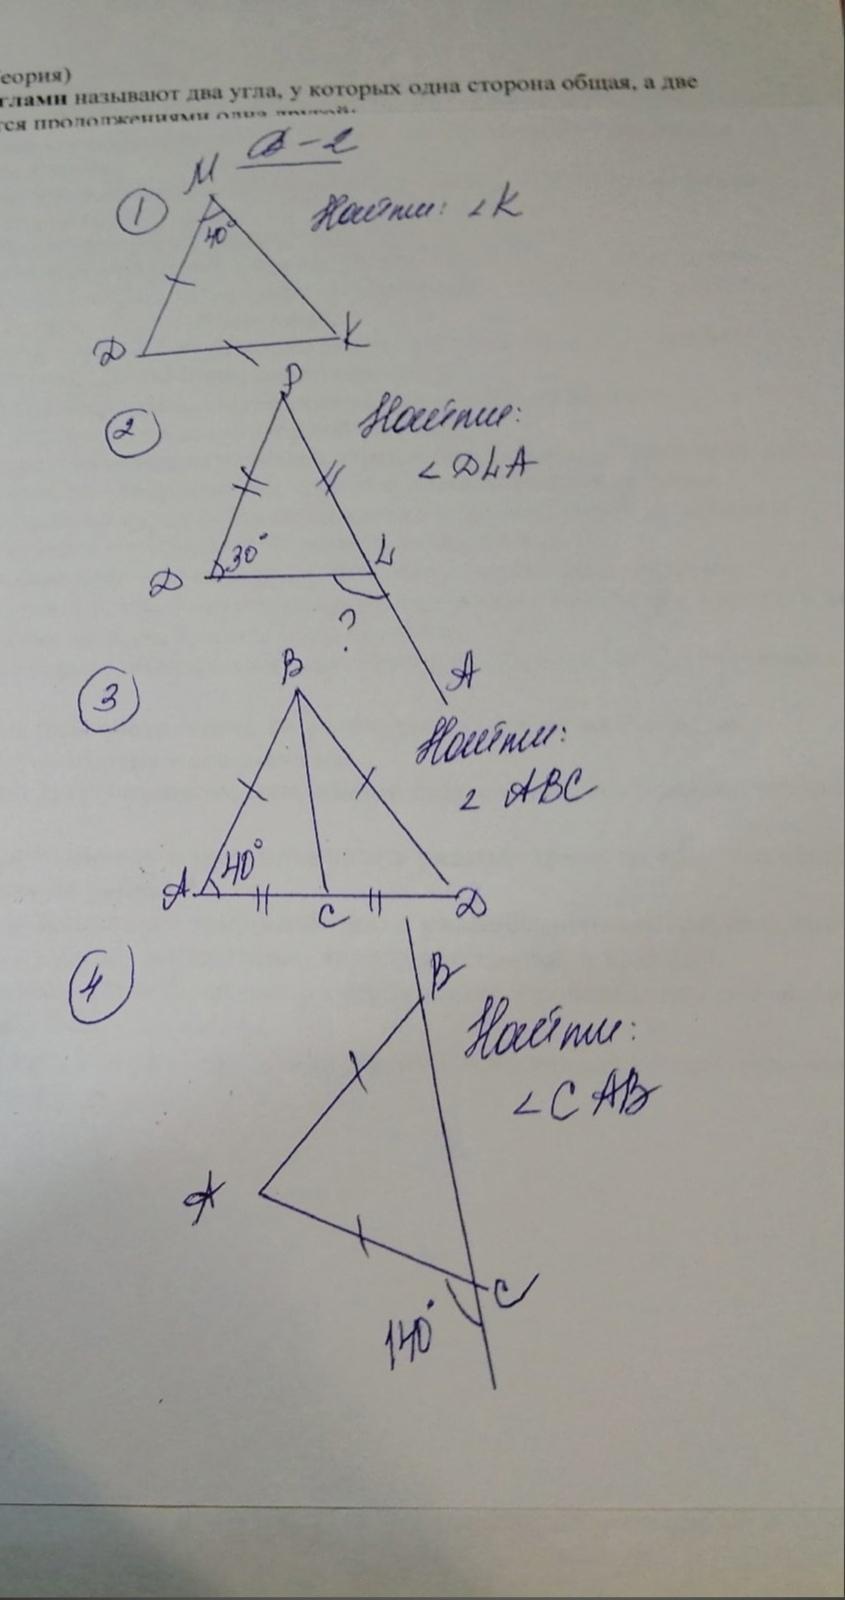 еория)
глами называют два угла, у которых одна сторона общая, а две
тся продолжениями одна другой.
В-2
1
М
40°
Найти: ∠К
D
К
2
Р
Найти:
∠DLA
30°
D
L
?
А
3
В
Найти:
∠ АВС
40°
А
С
D
4
В
Найти:
∠САВ
А
С
140°